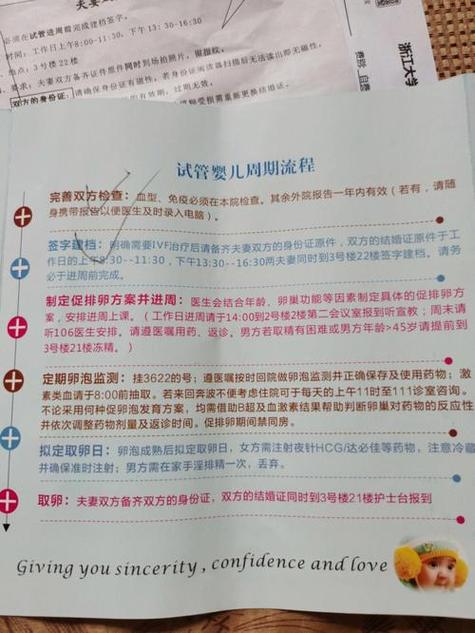 夫妻
必须在试管进周前完成建档签字。
时间：工作日上午8:00-11:30，下午13:30-16:30
地点：3号楼22楼
要求：夫妻双方备齐证件原件同时到场拍照片、摁指纹。
双方的身份证：请确保身份证有磁性，若身份证阅读器扫描后无法读出即无磁性，
的有效期，过期无效。
浙江大学
试管婴儿周期流程
完善双方检查：血型、免疫必须在本院检查。其余外院报告一年内有效（若有，请随
身携带报告以便医生及时录入电脑）。
签字建档：明确需要IVF治疗后请备齐夫妻双方的身份证原件，双方的结婚证原件于工
作日的上午8:30--11:30，下午13:30--16:30两夫妻同时到3号楼22楼签字建档。请务
必于进周前完成。
制定促排卵方案并进周：医生会结合年龄、卵巢功能等因素制定具体的促排卵方
案，安排进周上课。（工作日进周请于14:00到2号楼2楼第二会议室报到听宣教；周末请
听106医生安排。请遵医嘱用药、返诊。男方若取精有困难或男方年龄>45岁请提前到
3号楼21楼冻精。）
定期卵泡监测：挂3622的号；遵医嘱按时回院做卵泡监测并正确保存及使用药物；激
素类血请于8:00前抽取。若来回奔波不便考虑住院可于每天的上午11时至111诊室咨询。
不论采用何种促卵泡发育方案，均需借助B超及血激素结果帮助判断卵巢对药物的反应性
并依次调整药物剂量及返诊时间。促排卵期间禁同房。
拟定取卵日：卵泡成熟后拟定取卵日，女方需注射夜针HCG/达必佳等药物，注意冷藏
并确保准时注射；男方需在家手淫排精一次，丢弃。
取卵：夫妻双方备齐双方的身份证，双方的结婚证同时到3号楼21楼护士台报到
Giving you sincerity , confidence and love